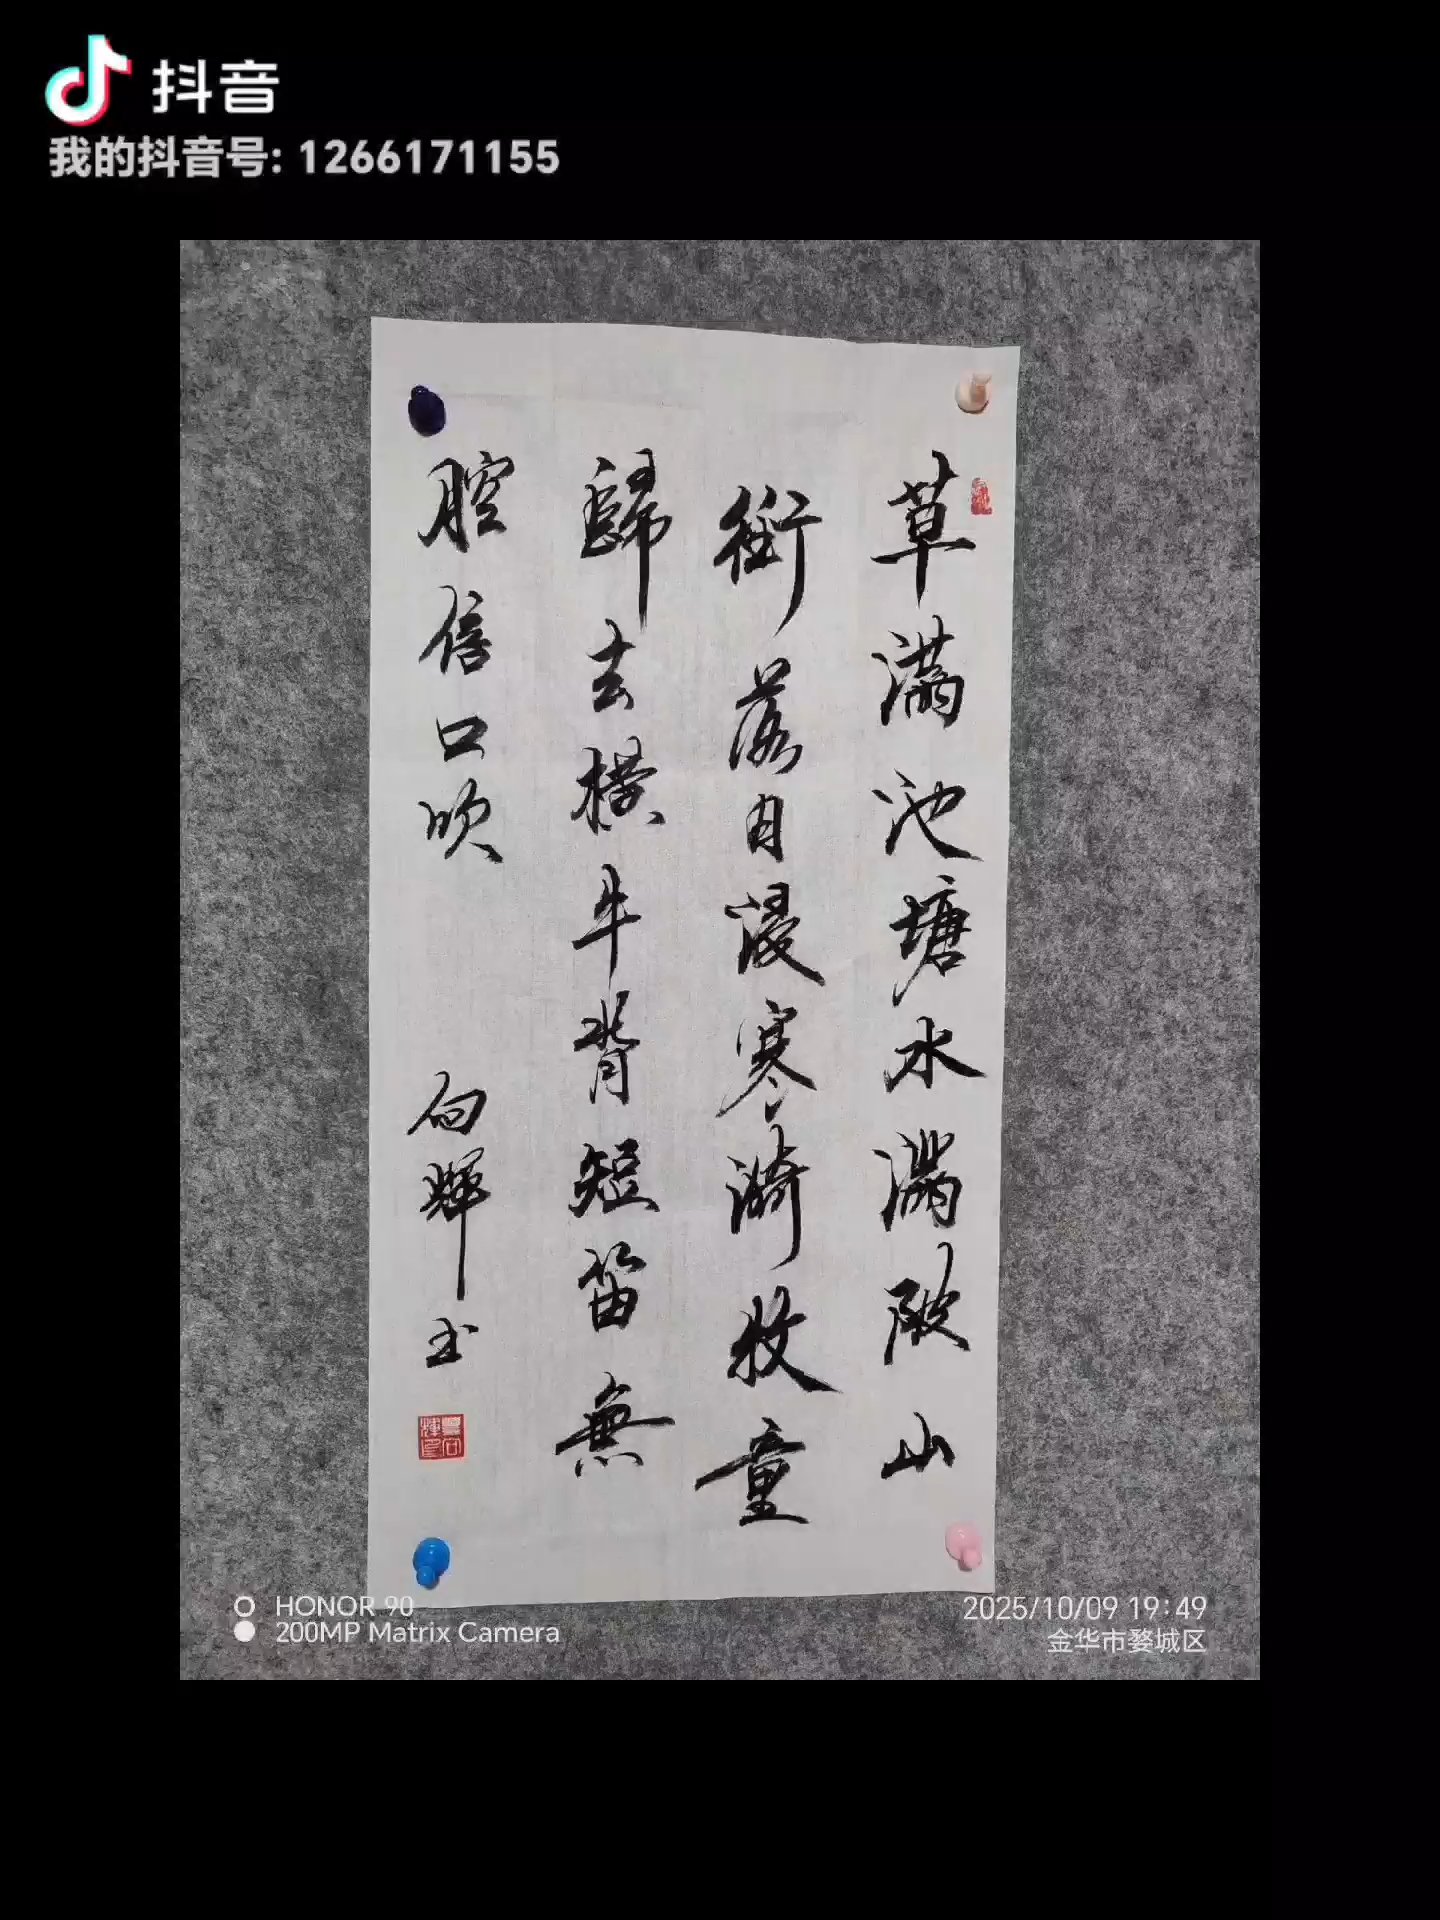 抖音
我的抖音号: 1266171155
草滿池塘水滿陂山
銜落日浸寒漪牧童
歸去橫牛背短笛無
腔信口吹
向輝书
HONOR 90
200MP Matrix Camera
2025/10/09 19:49
金华市婺城区